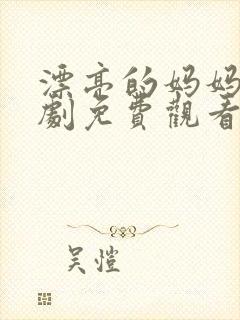 漂亮的妈妈
劇免費觀看
吴愷